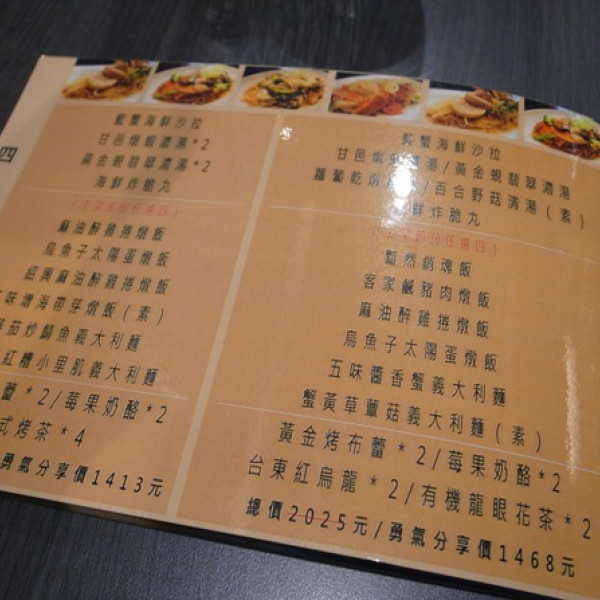 四
蟹海鮮沙拉
甘邑燉蝦濃湯*2
黃金蜆翡翠濃湯*2
海鮮炸脆丸
(主菜部份任選四)
麻油醉雞捲燉飯
烏魚子太陽蛋燉飯
紹興麻油醉雞捲燉飯
味燴海帶芽燉飯(素)
茄炒鯖魚義大利麵
紅糟小里肌義大利麵
蕾*2/莓果奶酪*2
式烤茶*4
勇氣分享價1413元
蟹海鮮沙拉
甘邑燉濃湯/黃金蜆翡翠濃湯
蘿蔔乾燉/百合野菇清湯(素)
鮮炸脆丸
部份任選四)
黯然銷魂飯
客家鹹豬肉燉飯
麻油醉雞捲燉飯
烏魚子太陽蛋燉飯
五味醬香蟹義大利麵
蟹黃草蕈菇義大利麵(素)
黃金烤布蕾*2/莓果奶酪*2
台東紅烏龍*2/有機龍眼花茶*2
總價2025元/勇氣分享價1468元